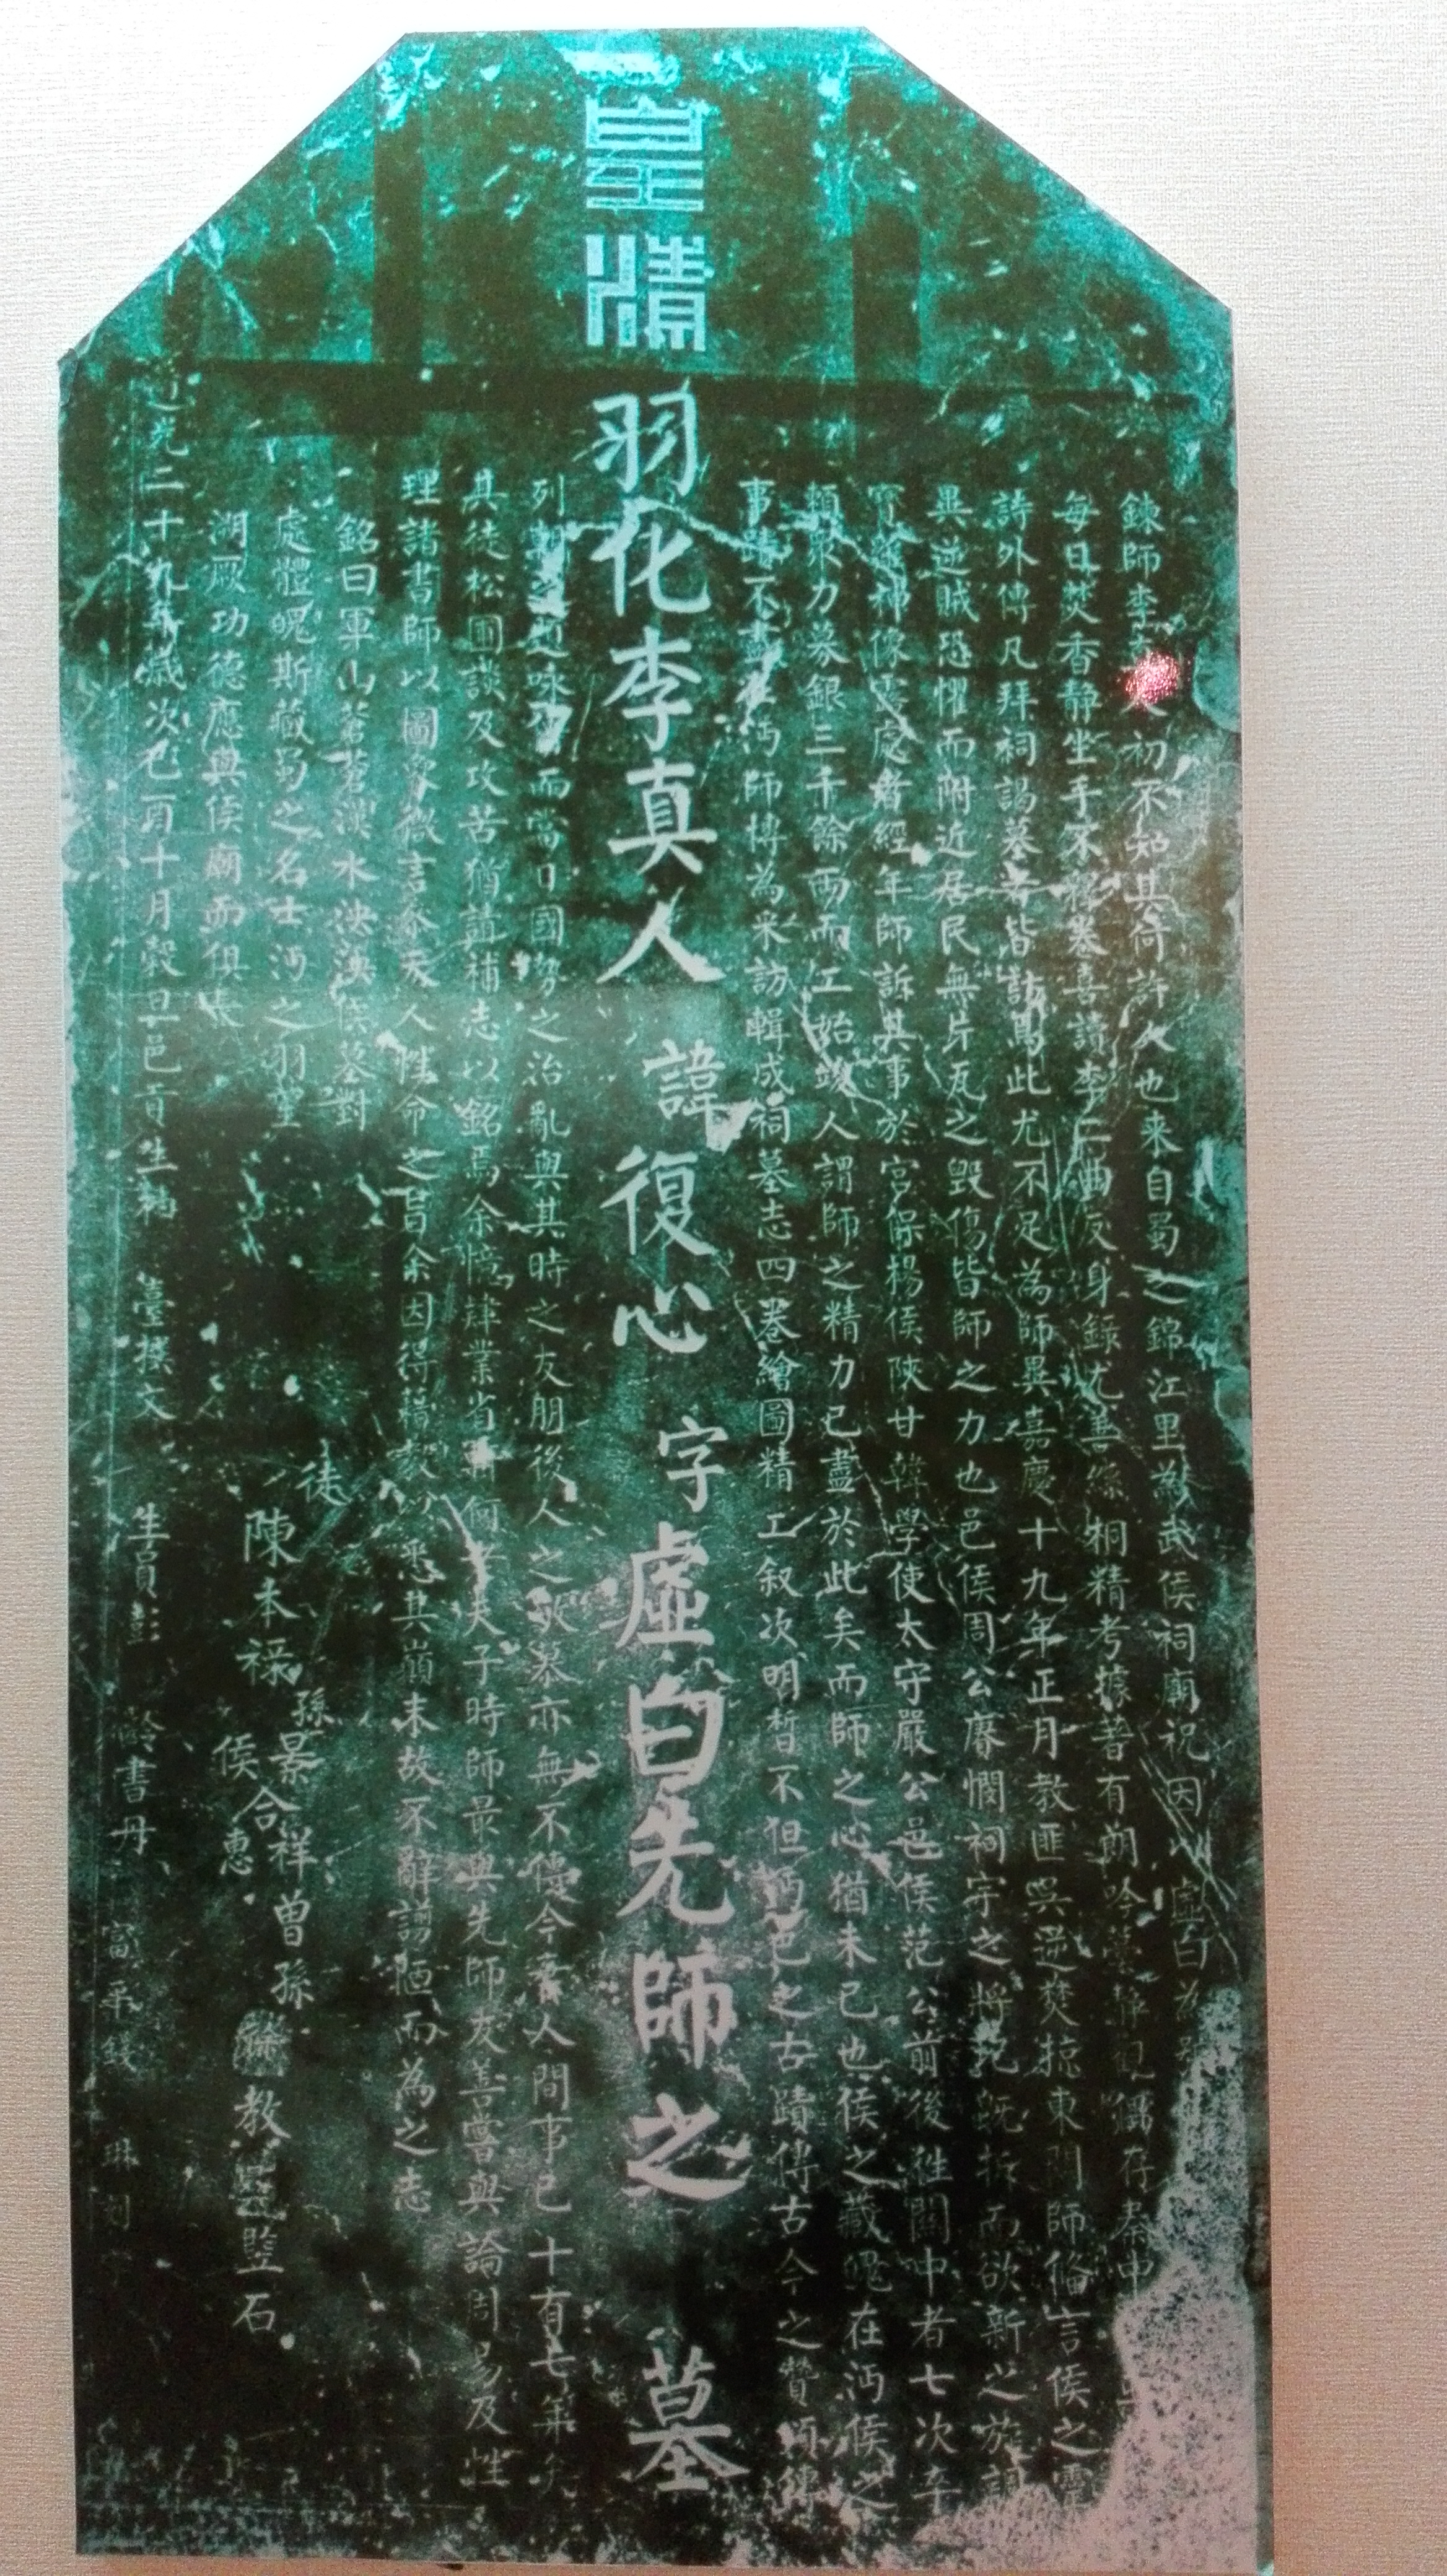 鍊師李
人初不知其何許人也来自蜀之錦江里為武侯祠廟祝因以虛白為
每日焚香靜坐手不釋卷喜讀李二曲反身錄尤善絲桐精考據著有朗吟
存秦中
詩外傳凡拜祠謁墓者皆訪焉此尤不足為師異嘉慶十九年正月教匪吳逆焚掠東關師脩言侯之靈
異逆賊恐懼而附近居民無片瓦之毀傷皆師之力也邑侯周公賡憫祠宇之將圮既拆而欲新之旋調
像露處者經年師訴其事於宮保楊侯陝甘韓學使太守嚴公邑侯范公前後往關中者七次卒
賴眾力募銀三千餘兩而工始竣人謂師之精力已盡於此矣而師之心猶未已也侯之藏魄在沔侯之
事蹟不盡在沔師博為采訪輯成祠墓志四卷繪圖精工叙次明晳不但沔邑之古蹟傳古今之贊頌傳
皇清
羽化李真人諱復心字虛白先師之墓
列
題咏
而當日國勢之治亂與其時之友朋後人之
慕亦無不傳今棄人間事已十有七年矣
其徒松圃談及攻苦猶請補志以銘焉余憶肄業省
夫子時師最與先師友善嘗與論周易及性
理諸書師以圖
微言
天人性命之旨余因得
悉其巔末故不辭謭陋而為之志
銘曰軍山蒼蒼漢水泱泱侯墓對
處體魄斯藏蜀之名士沔之羽
湖厥功德應與侯廟而俱長
徒
陳本祿
侯
惠
孫景合祥曾孫
教
監石
道光二十九年歲次己酉十月穀旦邑貢生
臺撰文
生員彭
齡書丹
富平錢